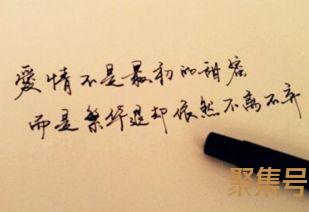 爱情不是最初的甜蜜
而是繁华退却依然不离不弃
聚焦号